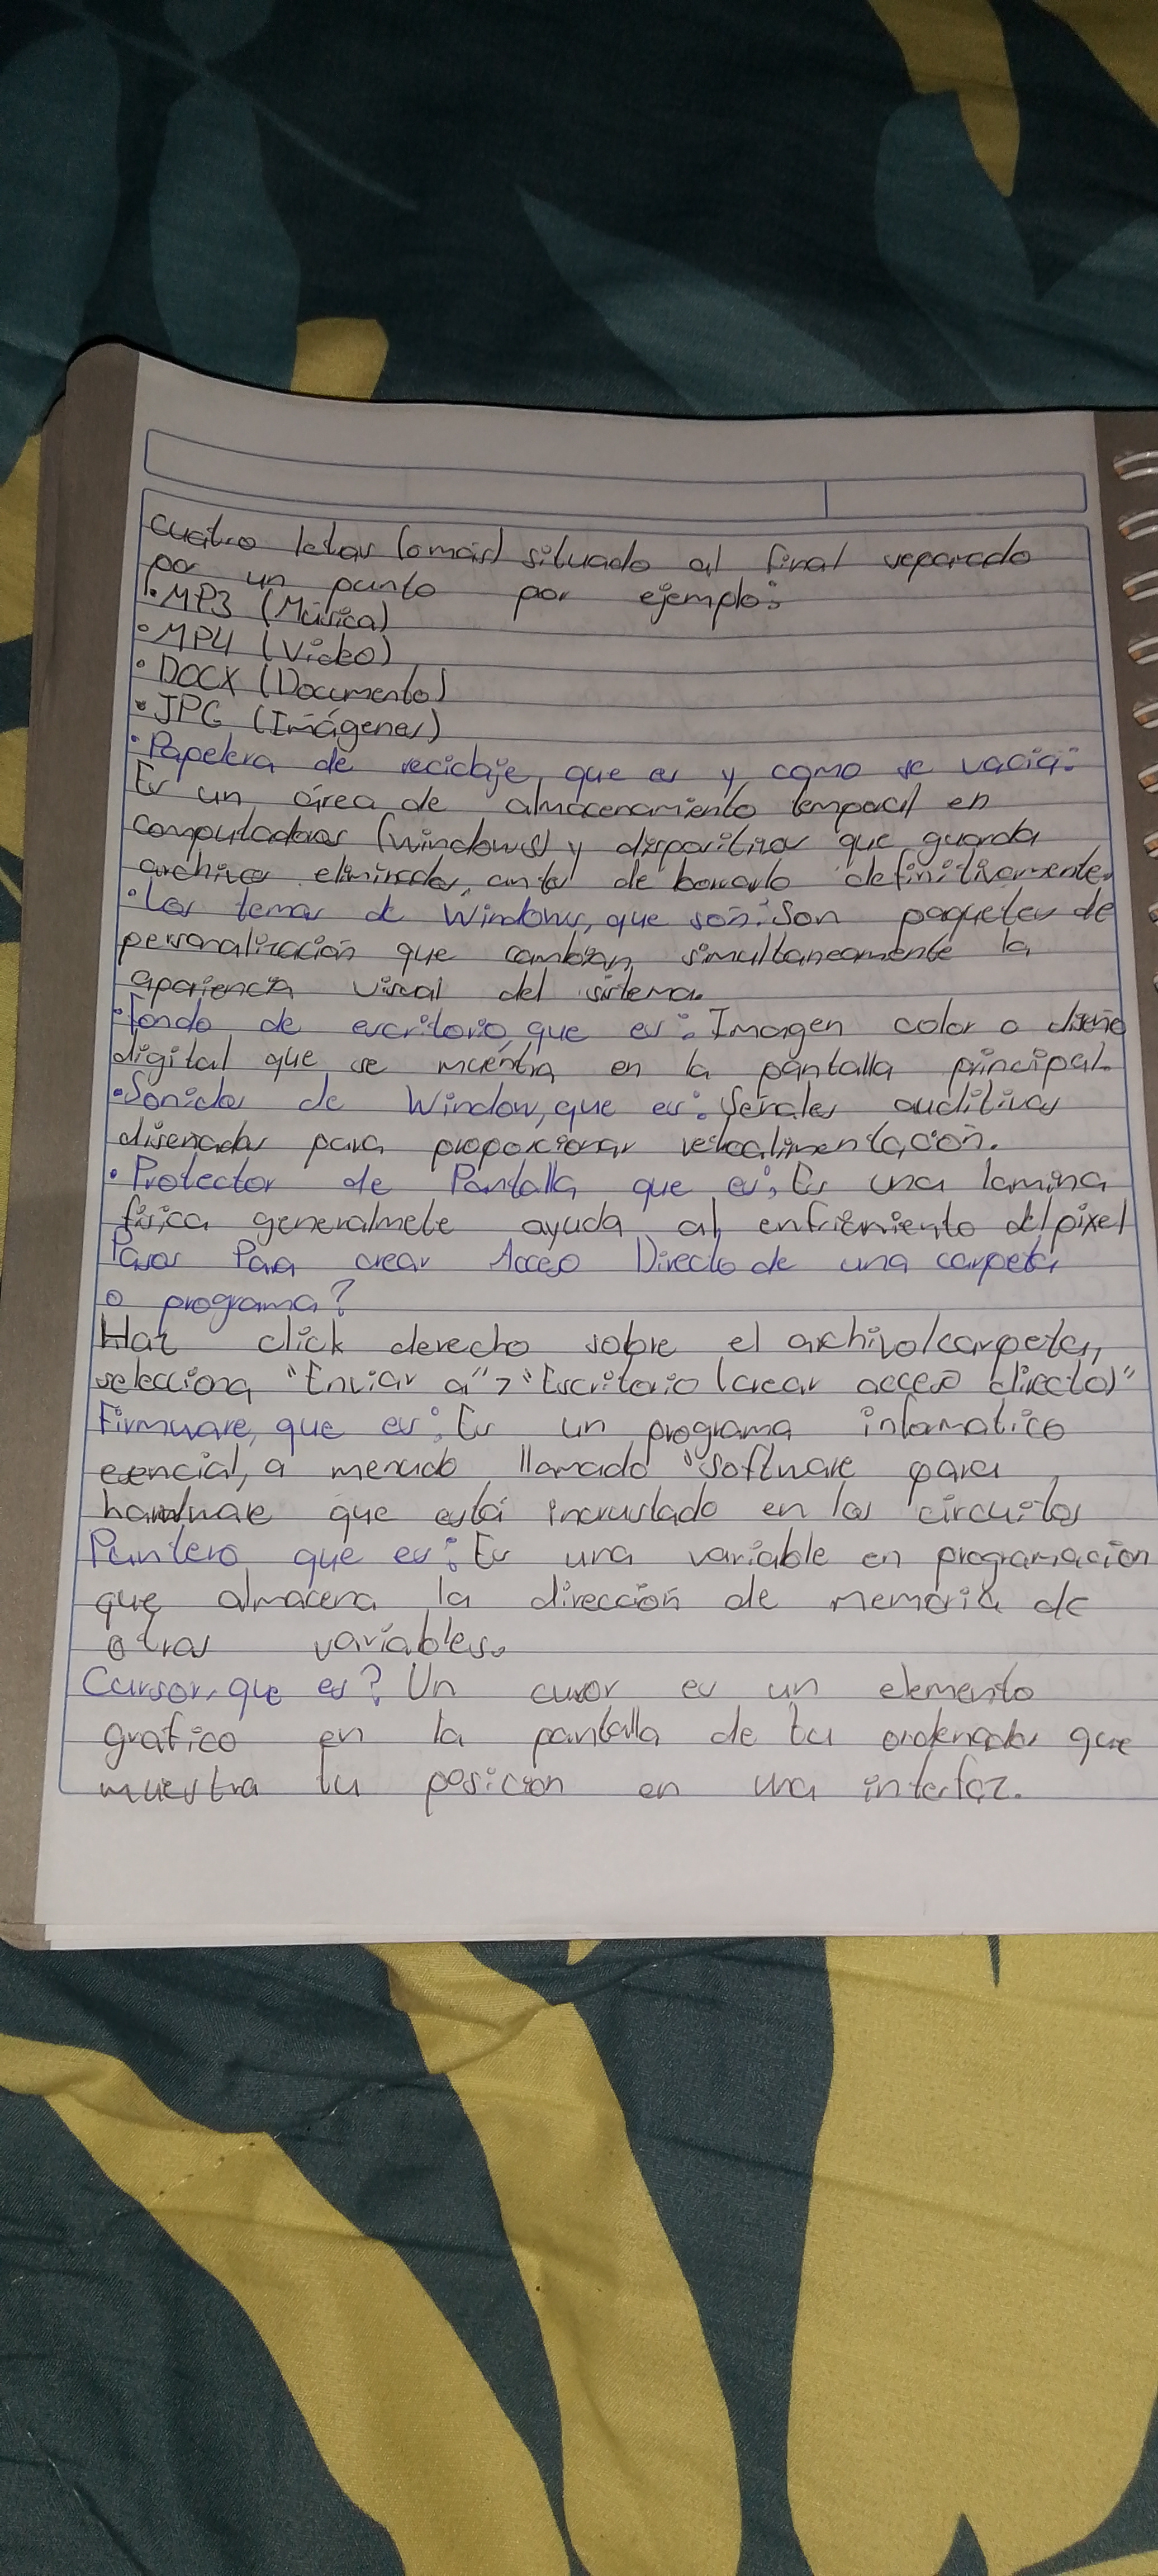 cuatro letras (o más) situado al final separado
por un punto por ejemplo:
• MP3 (Música)
• MP4 (Video)
• DOCX (Documento)
• JPG (Imágenes)
• Papelera de reciclaje, que es y como se vacia:
Es un área de almacenamiento temporal en
computadoras (windows) y dispositivos que guarda
archivos eliminados, antes de borrarlo definitivamente.
• Los temas de Windows, que son: Son paquetes de
personalización que cambian simultaneamente la
apariencia visual del sistema.
• Fondo de escritorio, que es: Imagen color o diseño
digital que se muentra en la pantalla principal.
• Sonidos de Window, que es: Señales auditivas
diseñadas para proporcionar retroalimentación.
• Protector de Pantalla que es; Es una lamina
física generalmete ayuda al enfriemiento del pixel
Pasos Para crear Acceso Directo de una carpeta
o programa?
Haz click derecho sobre el archivo/carpeta,
selecciona "Enviar a" > "Escritorio (crear acceso directo)"
Firmware, que es; Es un programa informatico
esencial, a menudo llamado "software para
hardware que está incrustado en los circuitos
Puntero que es: Es una variable en programación
que almacena la dirección de memoria de
otras variables.
Cursor, que es? Un cursor es un elemento
grafico en la pantalla de tu ordenador que
muestra tu posición en una interfaz.